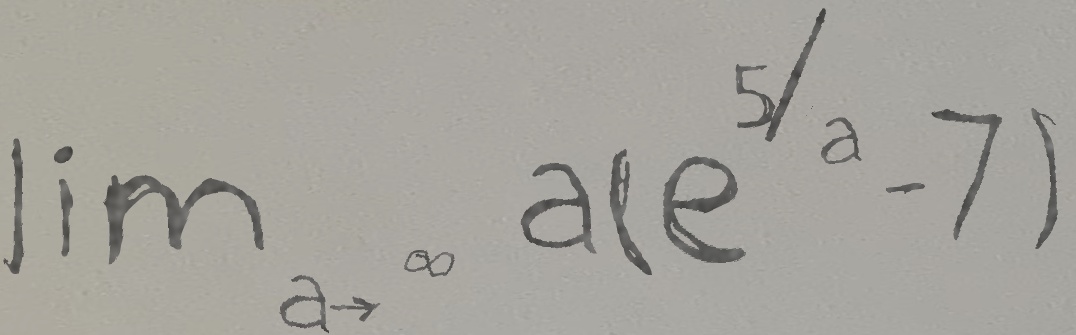 lim a→∞ a(e^5/a - 7)